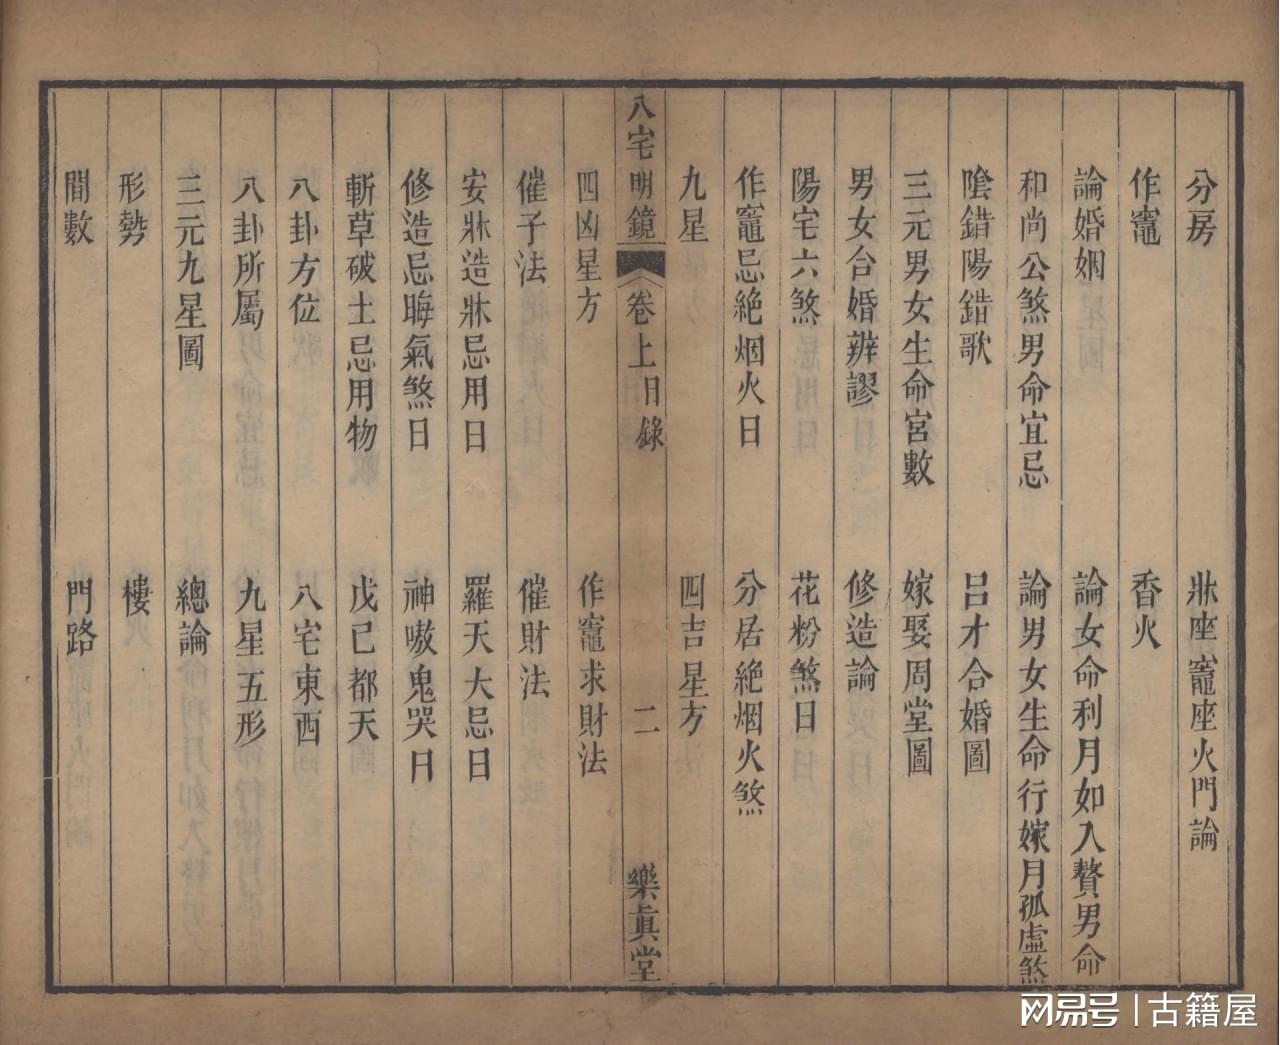 分房 牀座竈座火門論
作竈 香火
論婚姻 論女命利月如入贅男命
和尚公煞男命宜忌 論男女生命行嫁月孤虛煞
陰錯陽錯歌 呂才合婚圖
三元男女生命宮數 嫁娶周堂圖
男女合婚辨謬 修造論
陽宅六煞 花粉煞日
作竈忌絶烟火日 分居絶烟火煞
九星 四吉星方
八宅明鏡 卷上目錄 二 樂真堂
四凶星方 作竈求財法
催子法 催財法
安牀造牀忌用日 羅天大忌日
修造忌晦氣煞日 神嗷鬼哭日
斬草破土忌用物 戊己都天
八卦方位 八宅東西
八卦所屬 九星五形
三元九星圖 總論
形勢 樓
間數 門路
网易号 | 古籍屋